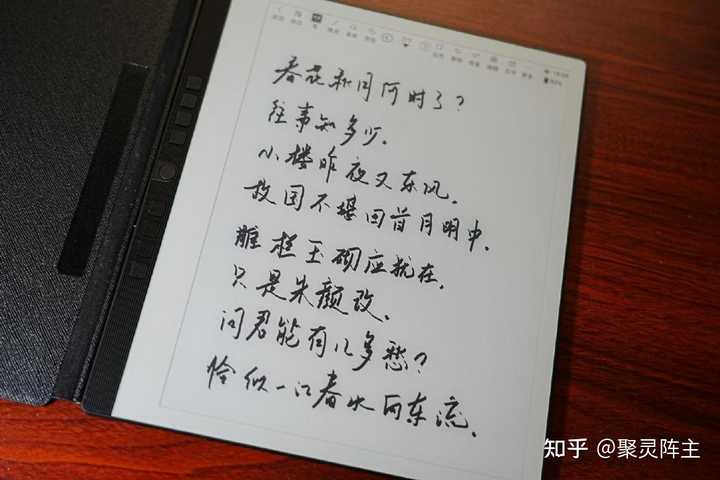 春花秋月何时了？
往事知多少.
小楼昨夜又东风.
故国不堪回首月明中.
雕栏玉砌应犹在.
只是朱颜改.
问君能有几多愁？
恰似一江春水向东流.
知乎 @聚灵阵主